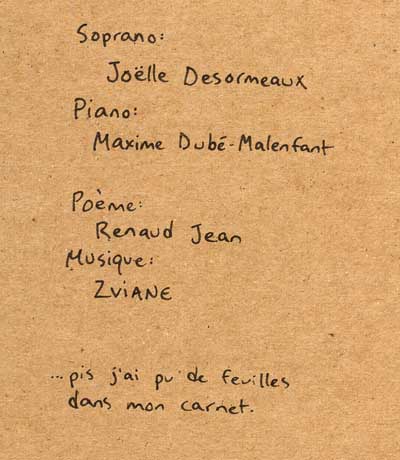 Soprano:
Joëlle Desormeaux
Piano:
Maxime Dubé-Malenfant
Poème:
Renaud Jean
Musique:
ZVIANE
...pis j'ai pu de feuilles
dans mon carnet.